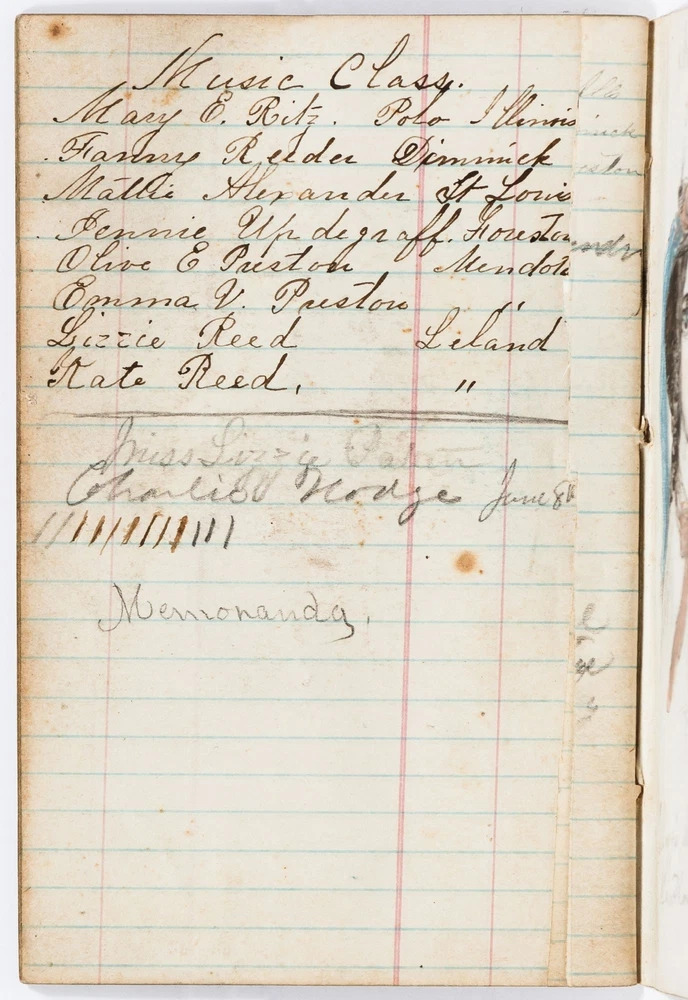 Music Class.
Mary E. Ritz. Polo Illinois
Fanny Reeder Dimmick
Mattie Alexander St Louis
Jennie Updegraff. Foreston
Olive E Preston Mendota
Emma V. Preston "
Lizzie Reed Leland
Kate Reed, "
Miss Lizzie
Charlie Hodge June 8th
Memoranda,